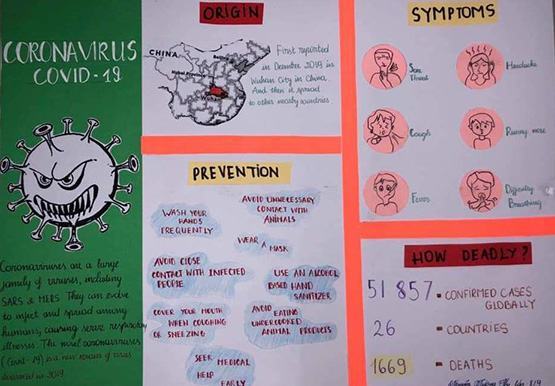 CORONAVIRUS
COVID-19
Coronaviruses are a large
family of viruses, including
SARS & MERS. They can evolve
to infect and spread among
humans, causing severe respiratory
illnesses. The novel coronavirus
(Covid-19) is a new species of virus
discovered in 2019
ORIGIN
CHINA
Beijing
Hubei Province
Wuhan
First reported
in December 2019 in
Wuhan City in China.
And then it spread
to other nearby countries
PREVENTION
WASH YOUR
HANDS
FREQUENTLY
AVOID UNNECESSARY
CONTACT WITH
ANIMALS
WEAR A MASK
AVOID CLOSE
CONTACT WITH INFECTED
PEOPLE
USE AN ALCOHOL
BASED HAND
SANITIZER
COVER YOUR MOUTH
WHEN COUGHING
OR SNEEZING
AVOID
EATING
UNDERCOOKED
ANIMAL PRODUCTS
SEEK MEDICAL
HELP
EARLY
SYMPTOMS
Sore
Throat
Headache
Cough
Runny nose
Fever
Difficulty
Breathing
HOW DEADLY?
51 857 - CONFIRMED CASES
GLOBALLY
26 - COUNTRIES
1669 - DEATHS